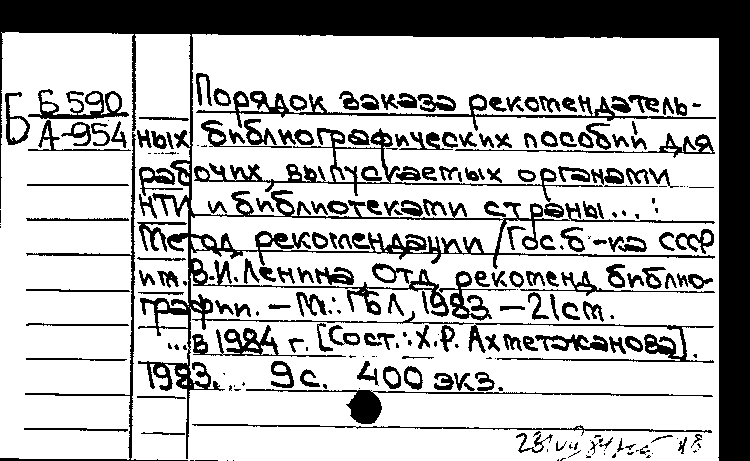 Б Б 590
А-954
Порядок заказа рекомендатель-
ных библиографических пособий для
рабочих, выпускаемых органами
НТИ и библиотеками страны... :
Метод. рекомендации / Гос. б-ка СССР
им. В.И. Ленина, Отд. рекоменд. библио-
графии. — М.: ГБЛ, 1983. — 21 см.
... в 1984 г. [Сост.: Х.Р. Ахметжанова].
1983. 9 с. 400 экз.